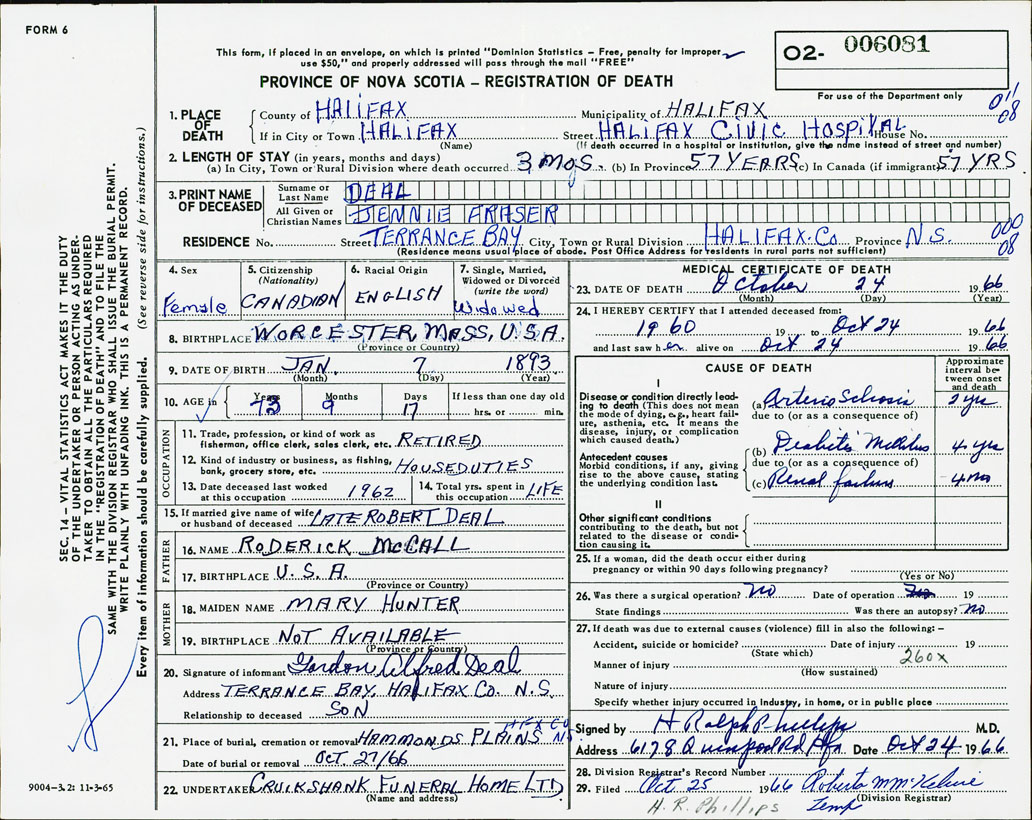 FORM 6
This form, if placed in an envelope, on which is printed "Dominion Statistics – Free, penalty for improper
use $50," and properly addressed will pass through the mail "FREE"
O2- 006081
For use of the Department only
PROVINCE OF NOVA SCOTIA – REGISTRATION OF DEATH
011
08
1. PLACE OF DEATH
County of HALIFAX Municipality of HALIFAX
If in City or Town HALIFAX Street HALIFAX CIVIC HOSPITAL House No.
(Name) (If death occurred in a hospital or institution, give the name instead of street and number)
2. LENGTH OF STAY (in years, months and days)
(a) In City, Town or Rural Division where death occurred 3 MOS. (b) In Province 57 YEARS (c) In Canada (if immigrant) 57 YRS
3. PRINT NAME OF DECEASED
Surname or Last Name DEAL
All Given or Christian Names JENNIE FRASER
000
08
RESIDENCE No. Street TERRANCE BAY City, Town or Rural Division HALIFAX. Co. Province N.S.
(Residence means usual place of abode. Post Office Address for residents in rural parts not sufficient)
4. Sex Female
5. Citizenship (Nationality) CANADIAN
6. Racial Origin ENGLISH
7. Single, Married, Widowed or Divorced (write the word) Widowed
8. BIRTHPLACE WORCESTER, MASS, U.S.A.
(Province or Country)
9. DATE OF BIRTH JAN. 7 1893
(Month) (Day) (Year)
10. AGE in Years 73 Months 9 Days 17 If less than one day old hrs. or min.
OCCUPATION
11. Trade, profession or kind of work as
fisherman, office clerk, sales clerk, etc. RETIRED
12. Kind of industry or business, as fishing,
bank, grocery store, etc. HOUSEDUTIES
13. Date deceased last worked at this occupation 1962
14. Total yrs. spent in this occupation LIFE
15. If married give name of wife
or husband of deceased LATE ROBERT DEAL
FATHER
16. NAME RODERICK McCALL
17. BIRTHPLACE U.S.A.
(Province or Country)
MOTHER
18. MAIDEN NAME MARY HUNTER
19. BIRTHPLACE NOT AVAILABLE
(Province or Country)
20. Signature of informant Gordon Alfred Deal
Address TERRANCE BAY, HALIFAX CO. N.S.
Relationship to deceased SON
21. Place of burial, cremation or removal HAMMONDS PLAINS HFX CO NS
Date of burial or removal OCT. 27/66
22. UNDERTAKER CRUIKSHANK FUNERAL HOME LTD
(Name and address)
MEDICAL CERTIFICATE OF DEATH
23. DATE OF DEATH October 24 1966
(Month) (Day) (Year)
24. I HEREBY CERTIFY that I attended deceased from:
1960 19 to Oct 24 1966
and last saw h er alive on Oct 24 1966
CAUSE OF DEATH
Approximate interval between onset and death
I
Disease or condition directly leading to death (This does not mean the mode of dying, e.g., heart failure, asthenia, etc. It means the disease, injury, or complication which caused death.)
(a) Arterio Sclerosis 2 yrs
due to (or as a consequence of)
Antecedent causes
Morbid conditions, if any, giving rise to the above cause, stating the underlying condition last.
(b) Diabetes Mellitus 4 yrs
due to (or as a consequence of)
(c) Renal failure 4 mo
II
Other significant conditions
contributing to the death, but not related to the disease or condition causing it.
25. If a woman, did the death occur either during
pregnancy or within 90 days following pregnancy?
(Yes or No)
26. Was there a surgical operation? No Date of operation 19
State findings Was there an autopsy? No
27. If death was due to external causes (violence) fill in also the following: –
Accident, suicide or homicide? Date of injury 19
(State which)
260X
Manner of injury
(How sustained)
Nature of injury
Specify whether injury occurred in Industry, in home, or in public place
Signed by H Ralph Phillips M.D.
Address 6178 Quinpool Rd Hfx Date Oct 24 1966
28. Division Registrar's Record Number
29. Filed Oct 25 1966 Roberta M McKelvie
H. R. Phillips Temp (Division Registrar)
SEC. 14 – VITAL STATISTICS ACT MAKES IT THE DUTY
OF THE UNDERTAKER OR PERSON ACTING AS UNDER-
TAKER TO OBTAIN ALL THE PARTICULARS REQUIRED
IN THE "REGISTRATION OF DEATH" AND TO FILE THE
SAME WITH THE DIVISION REGISTRAR WHO SHALL ISSUE THE BURIAL PERMIT.
WRITE PLAINLY WITH UNFADING INK. THIS IS A PERMANENT RECORD.
Every item of information should be carefully supplied. (See reverse side for instructions.)
9004-3.2: 11-3-65